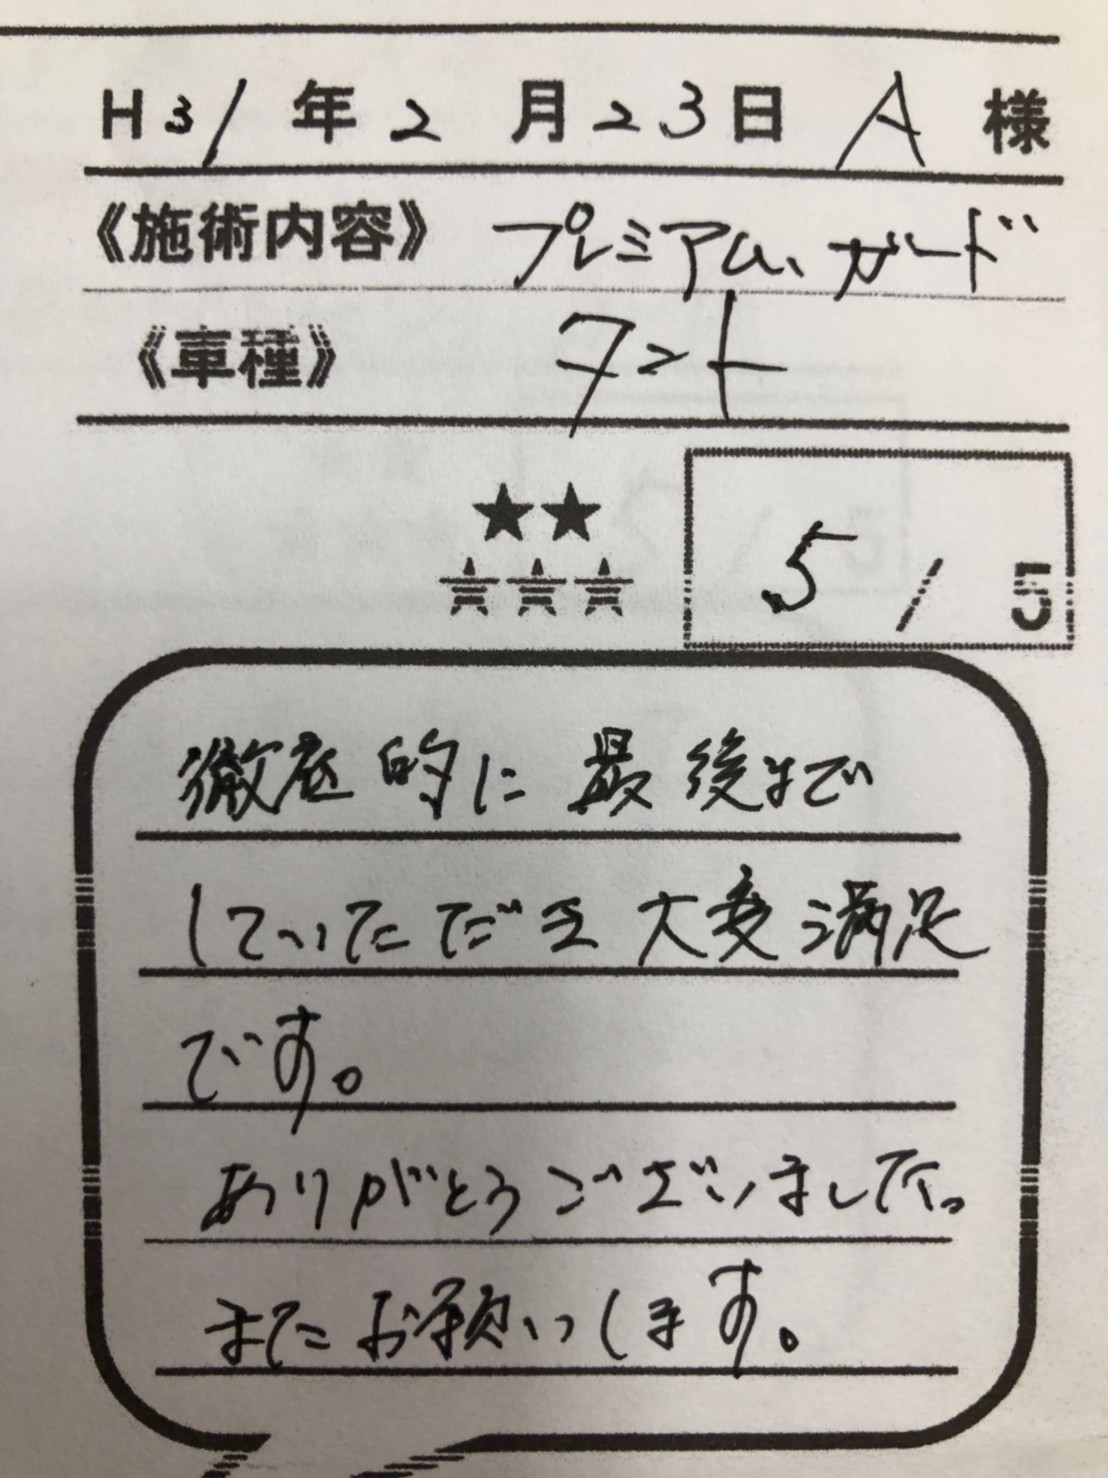 H31年2月23日 A 様
《施術内容》 プレミアム、ガード
《車種》 タント
★★
★★★
5/5
徹底的に最後まで
していただき大変満足
です。
ありがとうございました。
またお願いします。